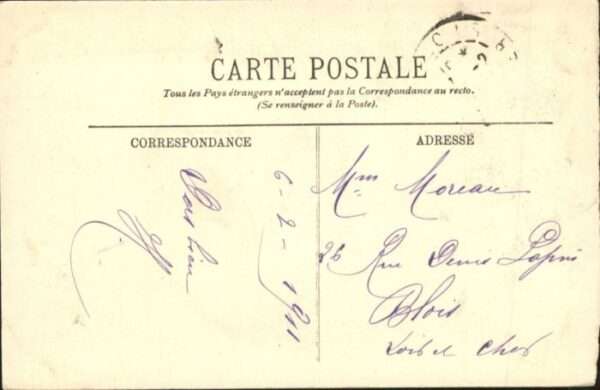 CARTE POSTALE
Tous les Pays étrangers n'acceptent pas la Correspondance au recto.
(Se renseigner à la Poste).
CORRESPONDANCE
ADRESSE
6-2-1911
Mme Moreau
26 Rue Denis Papin
Blois
Loir et Cher